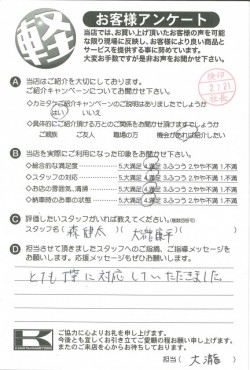 軽
お客様アンケート
当店では、お買い上げ頂いたお客様の声を可能
な限り現場に反映し、お客様により良い商品と
サービスを提供する事に努めています。
大変お手数ですが是非お声をお聞かせ下さい。
A 当店はご紹介を大切にしております。
ご紹介キャンペーンについてお聞かせ下さい。
◇カミタケご紹介キャンペーンの説明はありましたでしょうか
はい いいえ
◇具体的にご紹介頂ける方とのご関係をお聞かせ頂けますでしょうか
ご親族 ご友人 職場の方 機会があれば紹介したい
B 当店を実際にご利用になった印象をお聞かせ下さい。
◇総合的な満足度 5.大満足 4.満足 3.ふつう 2.やや不満 1.不満
◇スタッフの対応 5.大満足 4.満足 3.ふつう 2.やや不満 1.不満
◇お店の雰囲気、清掃 5.大満足 4.満足 3.ふつう 2.やや不満 1.不満
◇納車時のお車の状態 5.大満足 4.満足 3.ふつう 2.やや不満 1.不満
C 評価したいスタッフがいれば教えてください。(複数回答可)
スタッフ名( 森 健太 ) (
D 担当させて頂きましたスタッフへのご指摘、ご指導メッセージを
お願いします。応援メッセージもぜひお願いします。
とても丁寧に対応していただきました
K
ご協力に心よりお礼を申し上げます。
今後とも宜しくお引き立てご愛顧の程お願い申し上げます。
またのご来店を心からお待ちしております。
担当( 大瀧 )